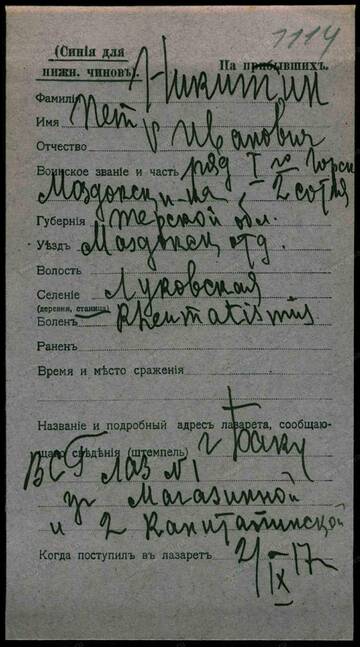 1114
(Синія для нижн. чиновъ). На прибывшихъ.
Фамилія Никитин
Имя Петр
Отчество Иванович
Воинское званіе и часть ряд I го Горско
Маздокск п-ка 2 сотня
Губернія Терской обл.
Уѣздъ Маздокск отд.
Волость
Селеніе Луковская
(деревня, станица)
Боленъ Rheumatismus
Раненъ
Время и мѣсто сраженія
Названіе и подробный адресъ лазарета, сообщаю-
щаго свѣдѣнія (штемпель) г Баку
ВСГ Лаз №1
уг Магазинной
и 2 Канитапинской
Когда поступилъ въ лазаретъ 2/IX 17